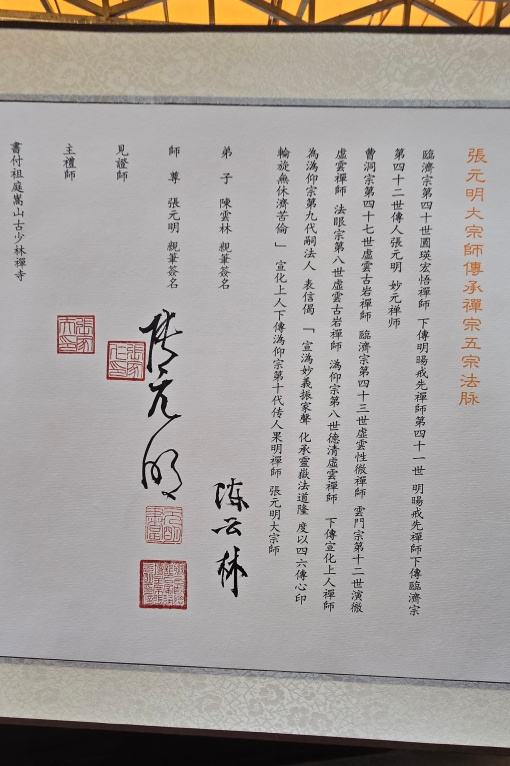 張元明大宗師傳承禪宗五宗法脉
臨濟宗第四十世圓瑛宏悟禪師 下傳明暘戒先禪師第四十一世 明暘戒先禪師下傳臨濟宗
第四十二世傳人張元明 妙元禅师
曹洞宗第四十七世虛雲古岩禪師 臨濟宗第四十三世虛雲性徹禪師 雲門宗第十二世演徹
虛雲禪師 法眼宗第八世虛雲古岩禪師 溈仰宗第八世德清虛雲禪師 下傳宣化上人禪師
為溈仰宗第九代嗣法人 表信偈 「宣溈妙義振家聲 化承靈嶽法道隆 度以四六傳心印
輪旋無休濟苦倫」 宣化上人下傳溈仰宗第十代传人果明禪師 張元明大宗師
弟子 陳雲林 親筆簽名
陈云林
師尊 張元明 親筆簽名
張元明
見證師
主禮師
書付祖庭嵩山古少林禪寺